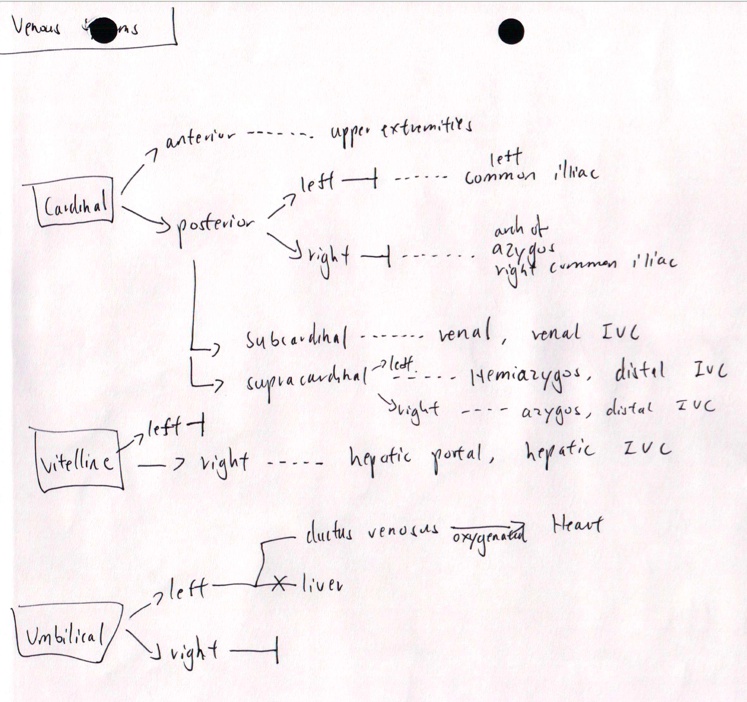 Venous
anterior ------- upper extremities
left ------ left common illiac
Cardinal
posterior
right ------- arch of azygos right common iliac
Subcardinal ------- renal, renal IVC
supracardinal left ------ Hemiazygos, distal IVC
right ---- azygos, distal IVC
left
Vitelline
right ----- hepatic portal, hepatic IVC
ductus venosus oxygenated Heart
left liver
Umbilical
right